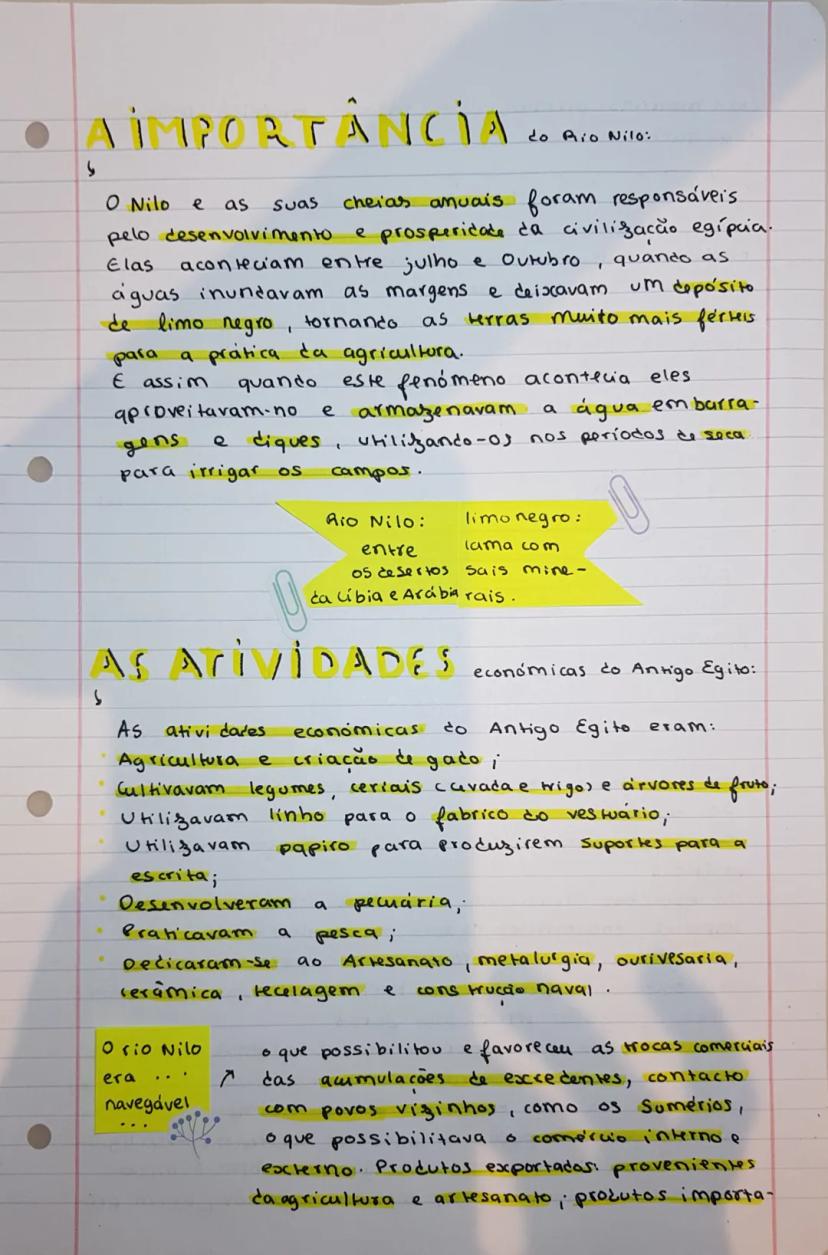 A IMPORTÂNCIA do Rio Nilo:
O Nilo e as suas cheias anuais foram responsáveis
pelo desenvolvimento e prosperidade da civilização egípcia.
Elas aconteciam entre julho e Outubro, quando as
águas inundavam as margens e deixavam um depósito
de limo negro, tornando as terras muito mais férteis
para a prática da agricultura.
E assim quando este fenómeno acontecia eles
aproveitavam-no e armazenavam a água em barra-
gens e diques, utilizando-os nos períodos de seca
para irrigar os campos.
Rio Nilo:
entre
os desertos
da Líbia e Arábia
limo negro:
lama com
sais mine-
rais.
AS ATIVIDADES económicas do Antigo Egito:
As atividades económicas do Antigo Egito eram:
• Agricultura e criação de gado;
• Cultivavam legumes, ceriais (cevada e trigo) e árvores de fruto;
• Utilizavam linho para o fabrico do vestuário;
• Utilizavam papiro para produzirem suportes para a
escrita;
• Desenvolveram a pecuária;
• Praticavam a pesca;
• Dedicaram-se ao Artesanato, metalurgia, ourivesaria,
cerâmica, tecelagem e construção naval.
O rio Nilo
era ...
navegável
...
o que possibilitou e favoreceu as trocas comerciais
das acumulações de excedentes, contacto
com povos vizinhos, como os Sumérios,
o que possibilitava o comércio interno e
externo. Produtos exportados: provenientes
da agricultura e artesanato; produtos importa-